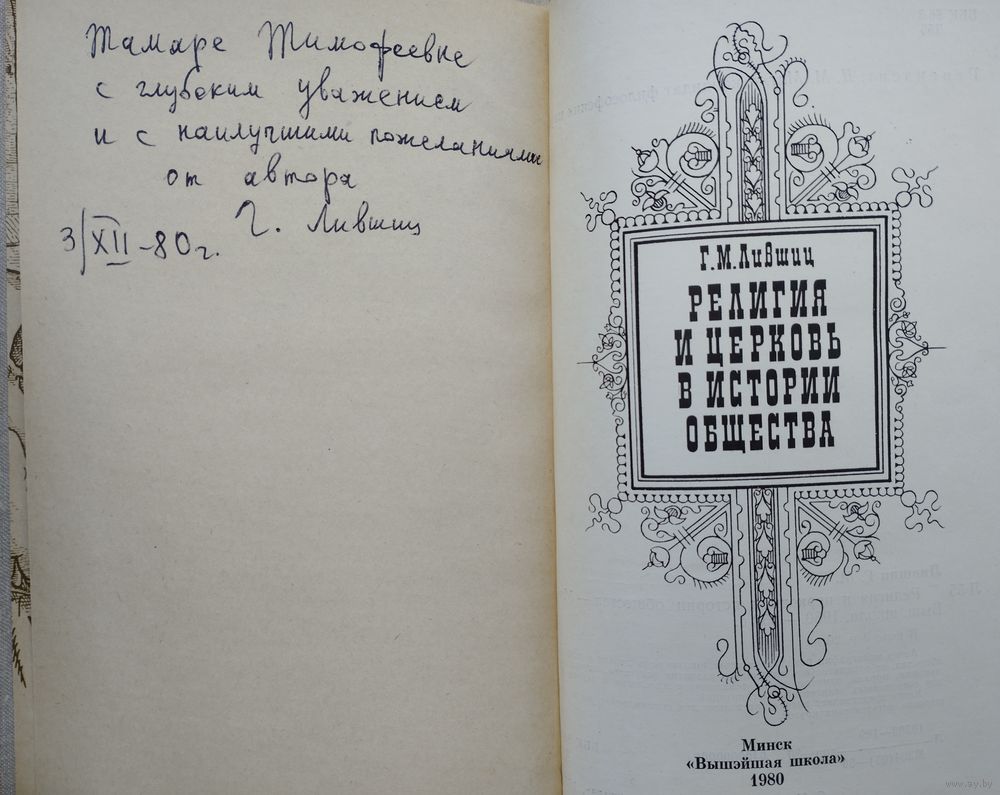 Тамаре Тимофеевне
с глубоким уважением
и с наилучшими пожеланиями
от автора
Г. Лившиц
3/XII-80г.
Г.М.Лившиц
РЕЛИГИЯ
И ЦЕРКОВЬ
В ИСТОРИИ
ОБЩЕСТВА
Минск
«Вышэйшая школа»
1980
www.ay.by